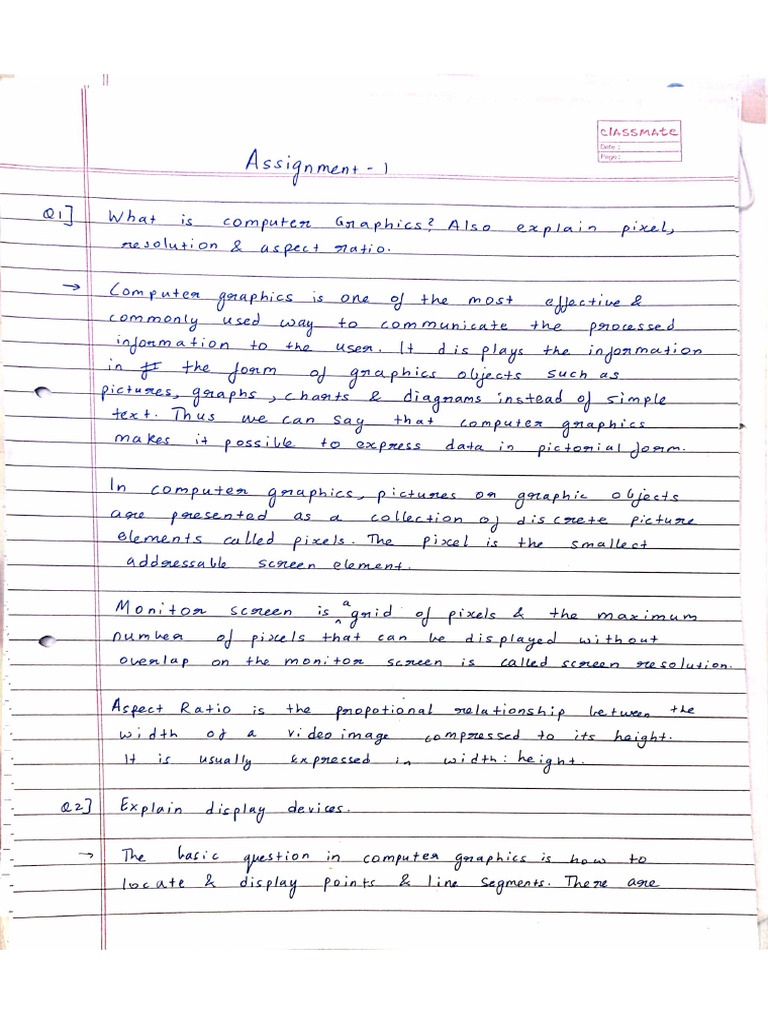 classmate
Date :
Page :
Assignment - 1
Q1] What is computer Graphics? Also explain pixel,
resolution & aspect ratio.
→ Computer graphics is one of the most effective &
commonly used way to communicate the processed
information to the user. It displays the information
in the form of graphics objects such as
pictures, graphs, charts & diagrams instead of simple
text. Thus we can say that computer graphics
makes it possible to express data in pictorial form.
In computer graphics, pictures or graphic objects
are presented as a collection of discrete picture
elements called pixels. The pixel is the smallest
addressable screen element.
Monitor screen is a grid of pixels & the maximum
number of pixels that can be displayed without
overlap on the monitor screen is called screen resolution.
Aspect Ratio is the propotional relationship between the
width of a video image compressed to its height.
It is usually expressed in width : height.
Q2] Explain display devices.
→ The basic question in computer graphics is how to
locate & display points & line segments. There are